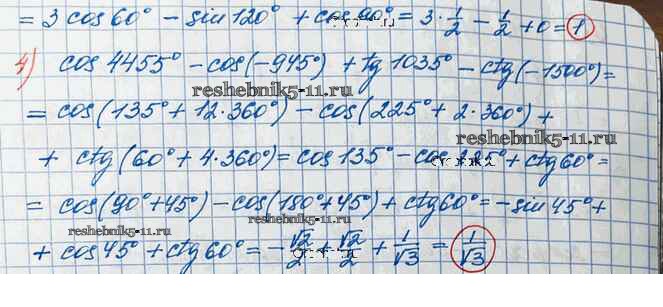 = 3 cos 60° − sin 120° + cos 90° = 3·1/2 − 1/2 + 0 = 1
4) cos 4455° − cos(−945°) + tg 1035° − ctg(−1500°) =
reshebnik5-11.ru
= cos(135° + 12·360°) − cos(225° + 2·360°) +
reshebnik5-11.ru
+ ctg(60° + 4·360°) = cos 135° − cos 225° + ctg 60° =
= cos(90° + 45°) − cos(180° + 45°) + ctg 60° = − sin 45° +
reshebnik5-11.ru
+ cos 45° + ctg 60° = − √2/2 + √2/2 + 1/√3 = 1/√3